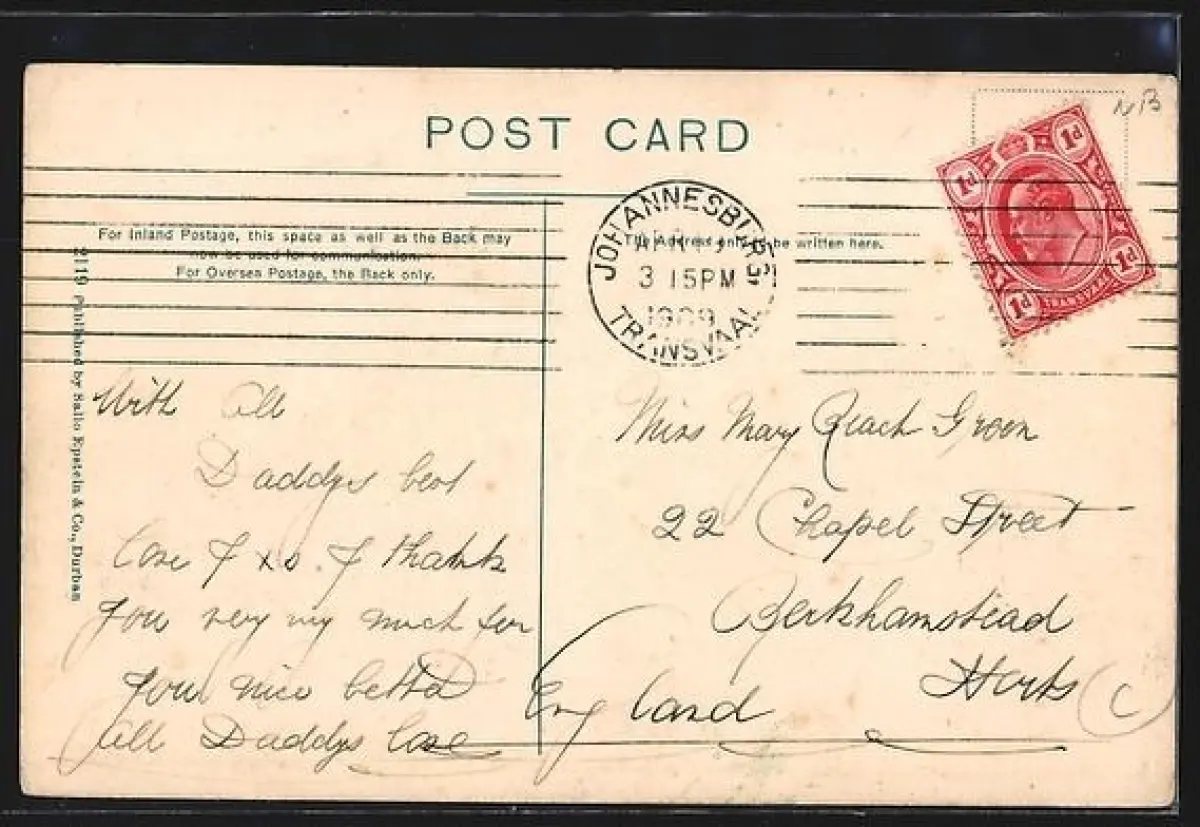 POST CARD
NB
1d 1d
1d 1d
TRANSVAAL
For Inland Postage, this space as well as the Back may
now be used for communication.
For Oversea Postage, the Back only.
The Address only to be written here.
JOHANNESBURG
3 15PM
1909
TRANSVAAL
2119 Published by Sallo Epstein & Co., Durban
With all
Daddys best
love & xs. & thank
you very my much for
you nice letter
all Daddys love
Miss Mary Reach Green
22 Chapel Street
Berkhamstead
Herts
England
C